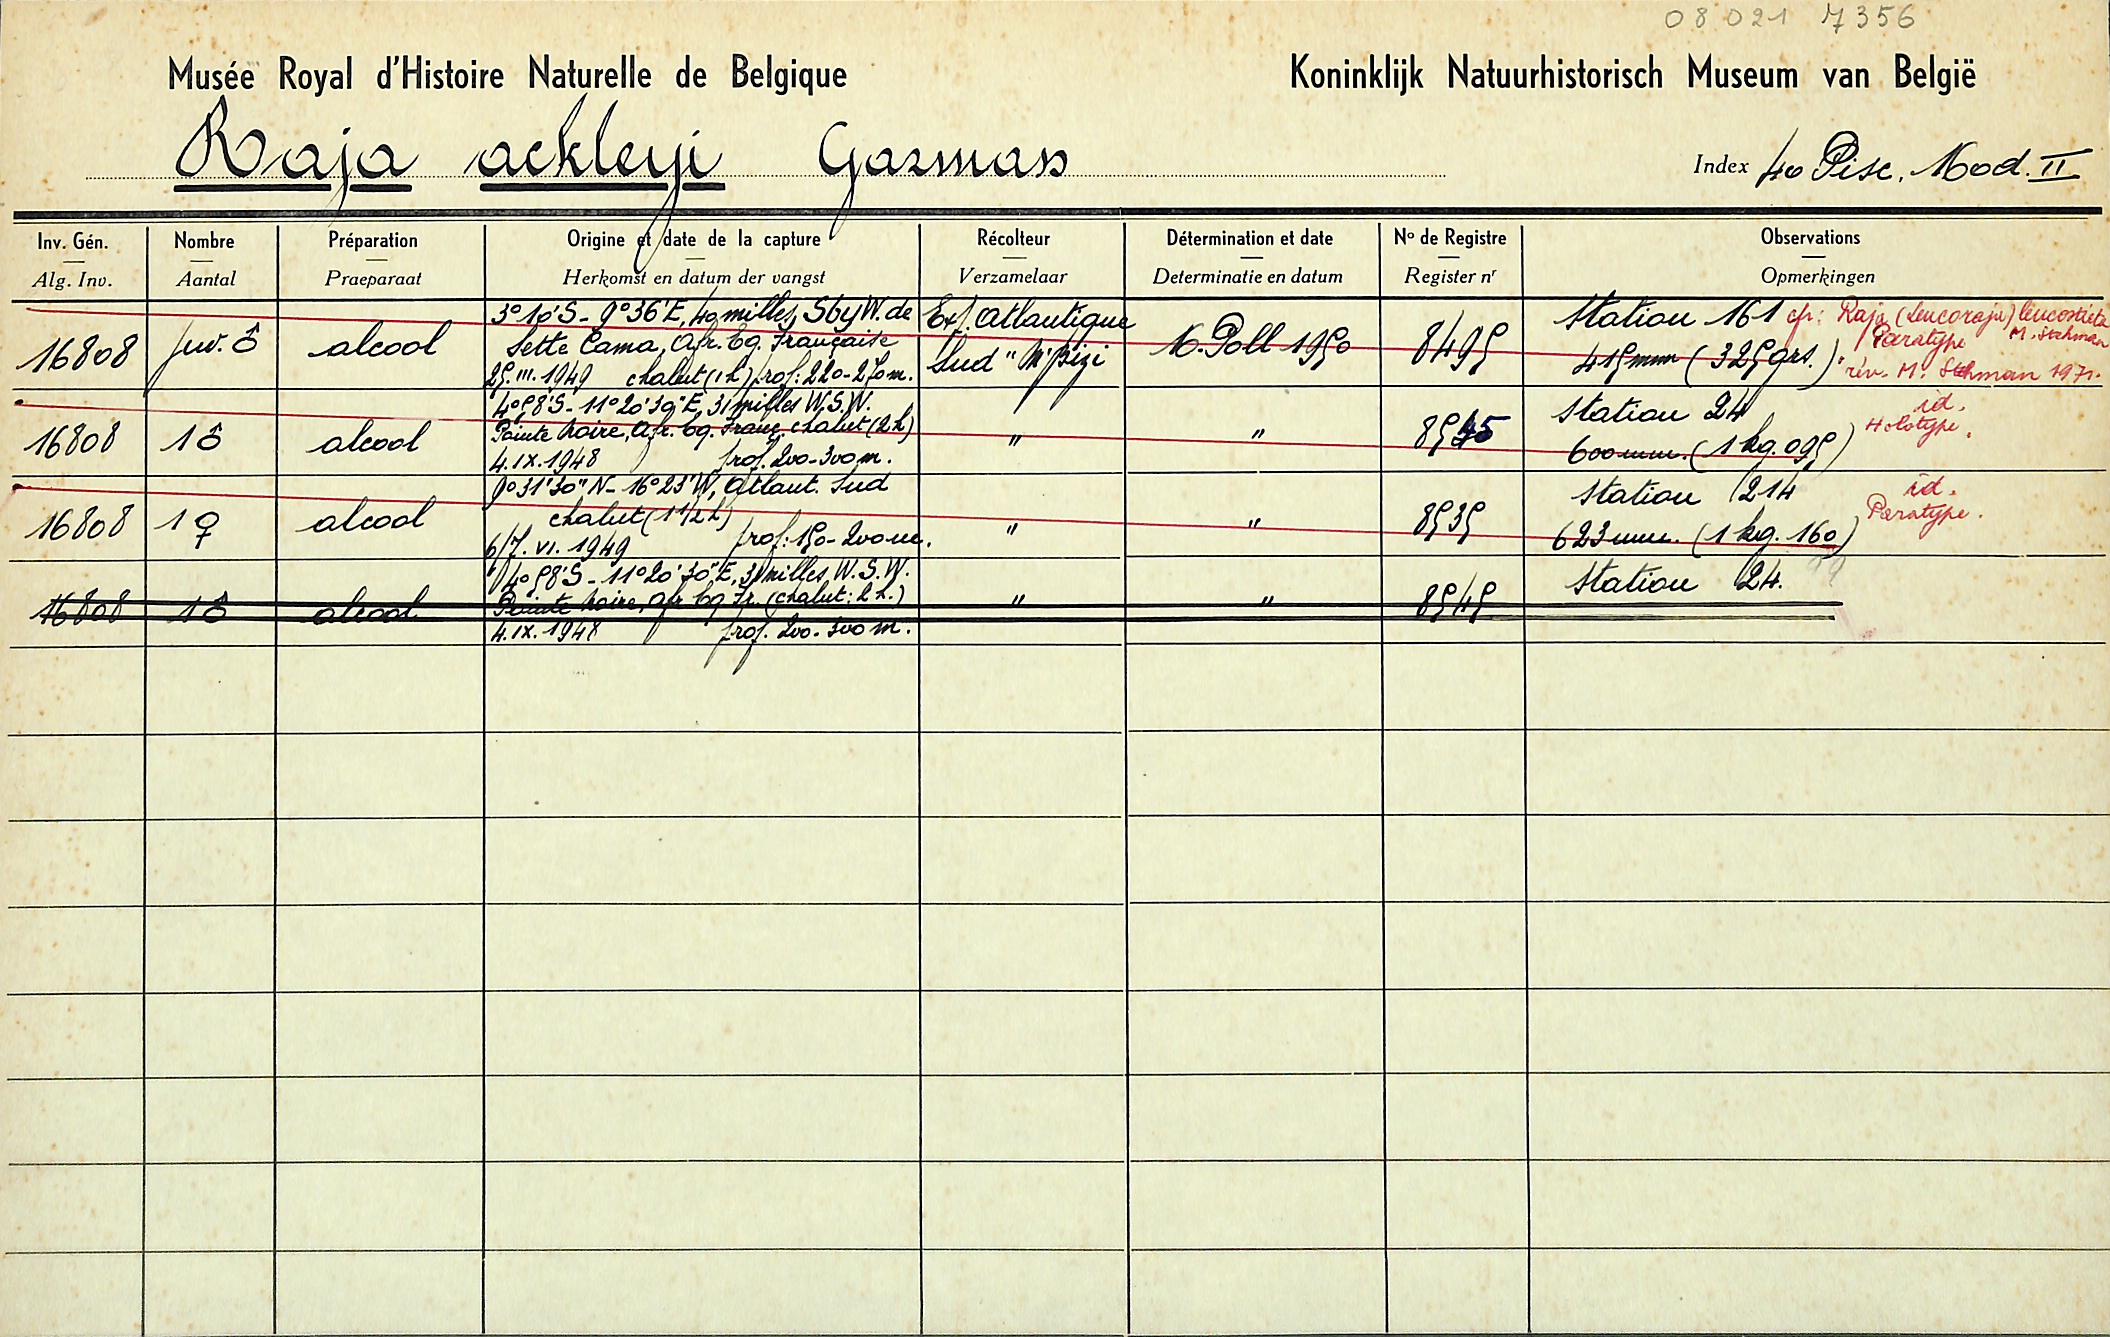 08021 7356
Musée Royal d'Histoire Naturelle de Belgique
Koninklijk Natuurhistorisch Museum van België
Raja ackleyi Garman
Index 40 Pisc. Mod. II
Inv. Gén. Nombre Préparation Origine et date de la capture Récolteur Détermination et date No de Registre Observations
Alg. Inv. Aantal Praeparaat Herkomst en datum der vangst Verzamelaar Determinatie en datum Register nr Opmerkingen
3°10'S - 9°36'E, 40 milles, S by W. de
Sette Cama, Afr. Eq. Française
25.III.1949 chalut (1 h) prof: 220-270 m.
16808 juv. ♂ alcool
Exp. Atlantique
Sud "M'Bizi
M. Poll 1950 8495
Station 161
415 mm (325 grs.)
cfr: Raja (Leucoraja) leucosticta
Paratype M. Stehman
rév. M. Stehman 1971.
4°58'S - 11°20'30"E, 31 milles W.S.W.
Pointe Noire, Afr. Eq. Franç. chalut (2 h)
4.IX.1948 prof. 200-300 m.
16808 1 ♂ alcool " " 8545
Station 24
600 mm. (1 kg. 095)
id.
Holotype.
9°31'30"N - 16°23'W, Atlant. Sud
chalut (1 1/2 h)
6/7.VI.1949 prof: 150-200 m.
16808 1 ♀ alcool " " 8535
Station 214
623 mm. (1 kg. 160)
id.
Paratype.
4°58'S - 11°20'30"E, 31 milles, W.S.W.
Pointe Noire, Afr. Eq. Fr. (chalut: 2 h.)
4.IX.1948 prof. 200-300 m.
16808 1 ♂ alcool " " 8545
Station 24.